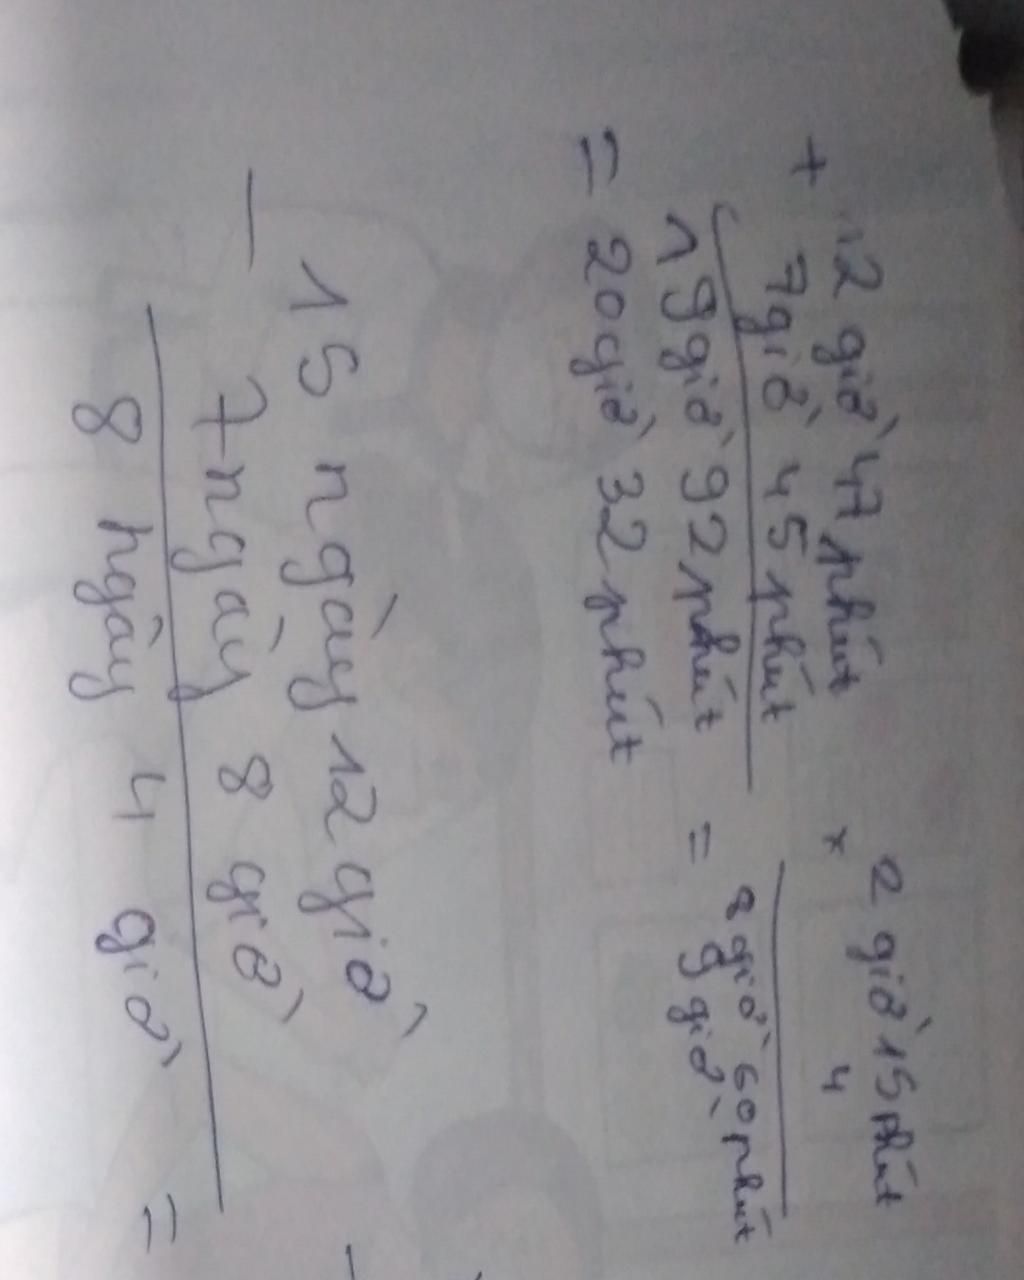 + 12 giờ 47 phút
7 giờ 45 phút
19 giờ 92 phút
= 20 giờ 32 phút
× 2 giờ 15 phút
4
8 giờ 60 phút
= 9 giờ
− 15 ngày 12 giờ
7 ngày 8 giờ
8 ngày 4 giờ
=
−